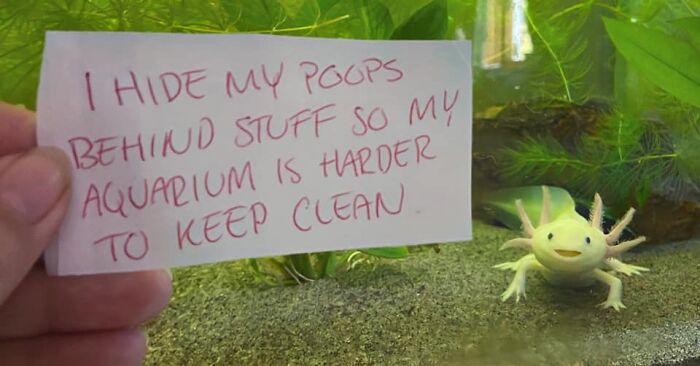 I HIDE MY POOPS
BEHIND STUFF SO MY
AQUARIUM IS HARDER
TO KEEP CLEAN